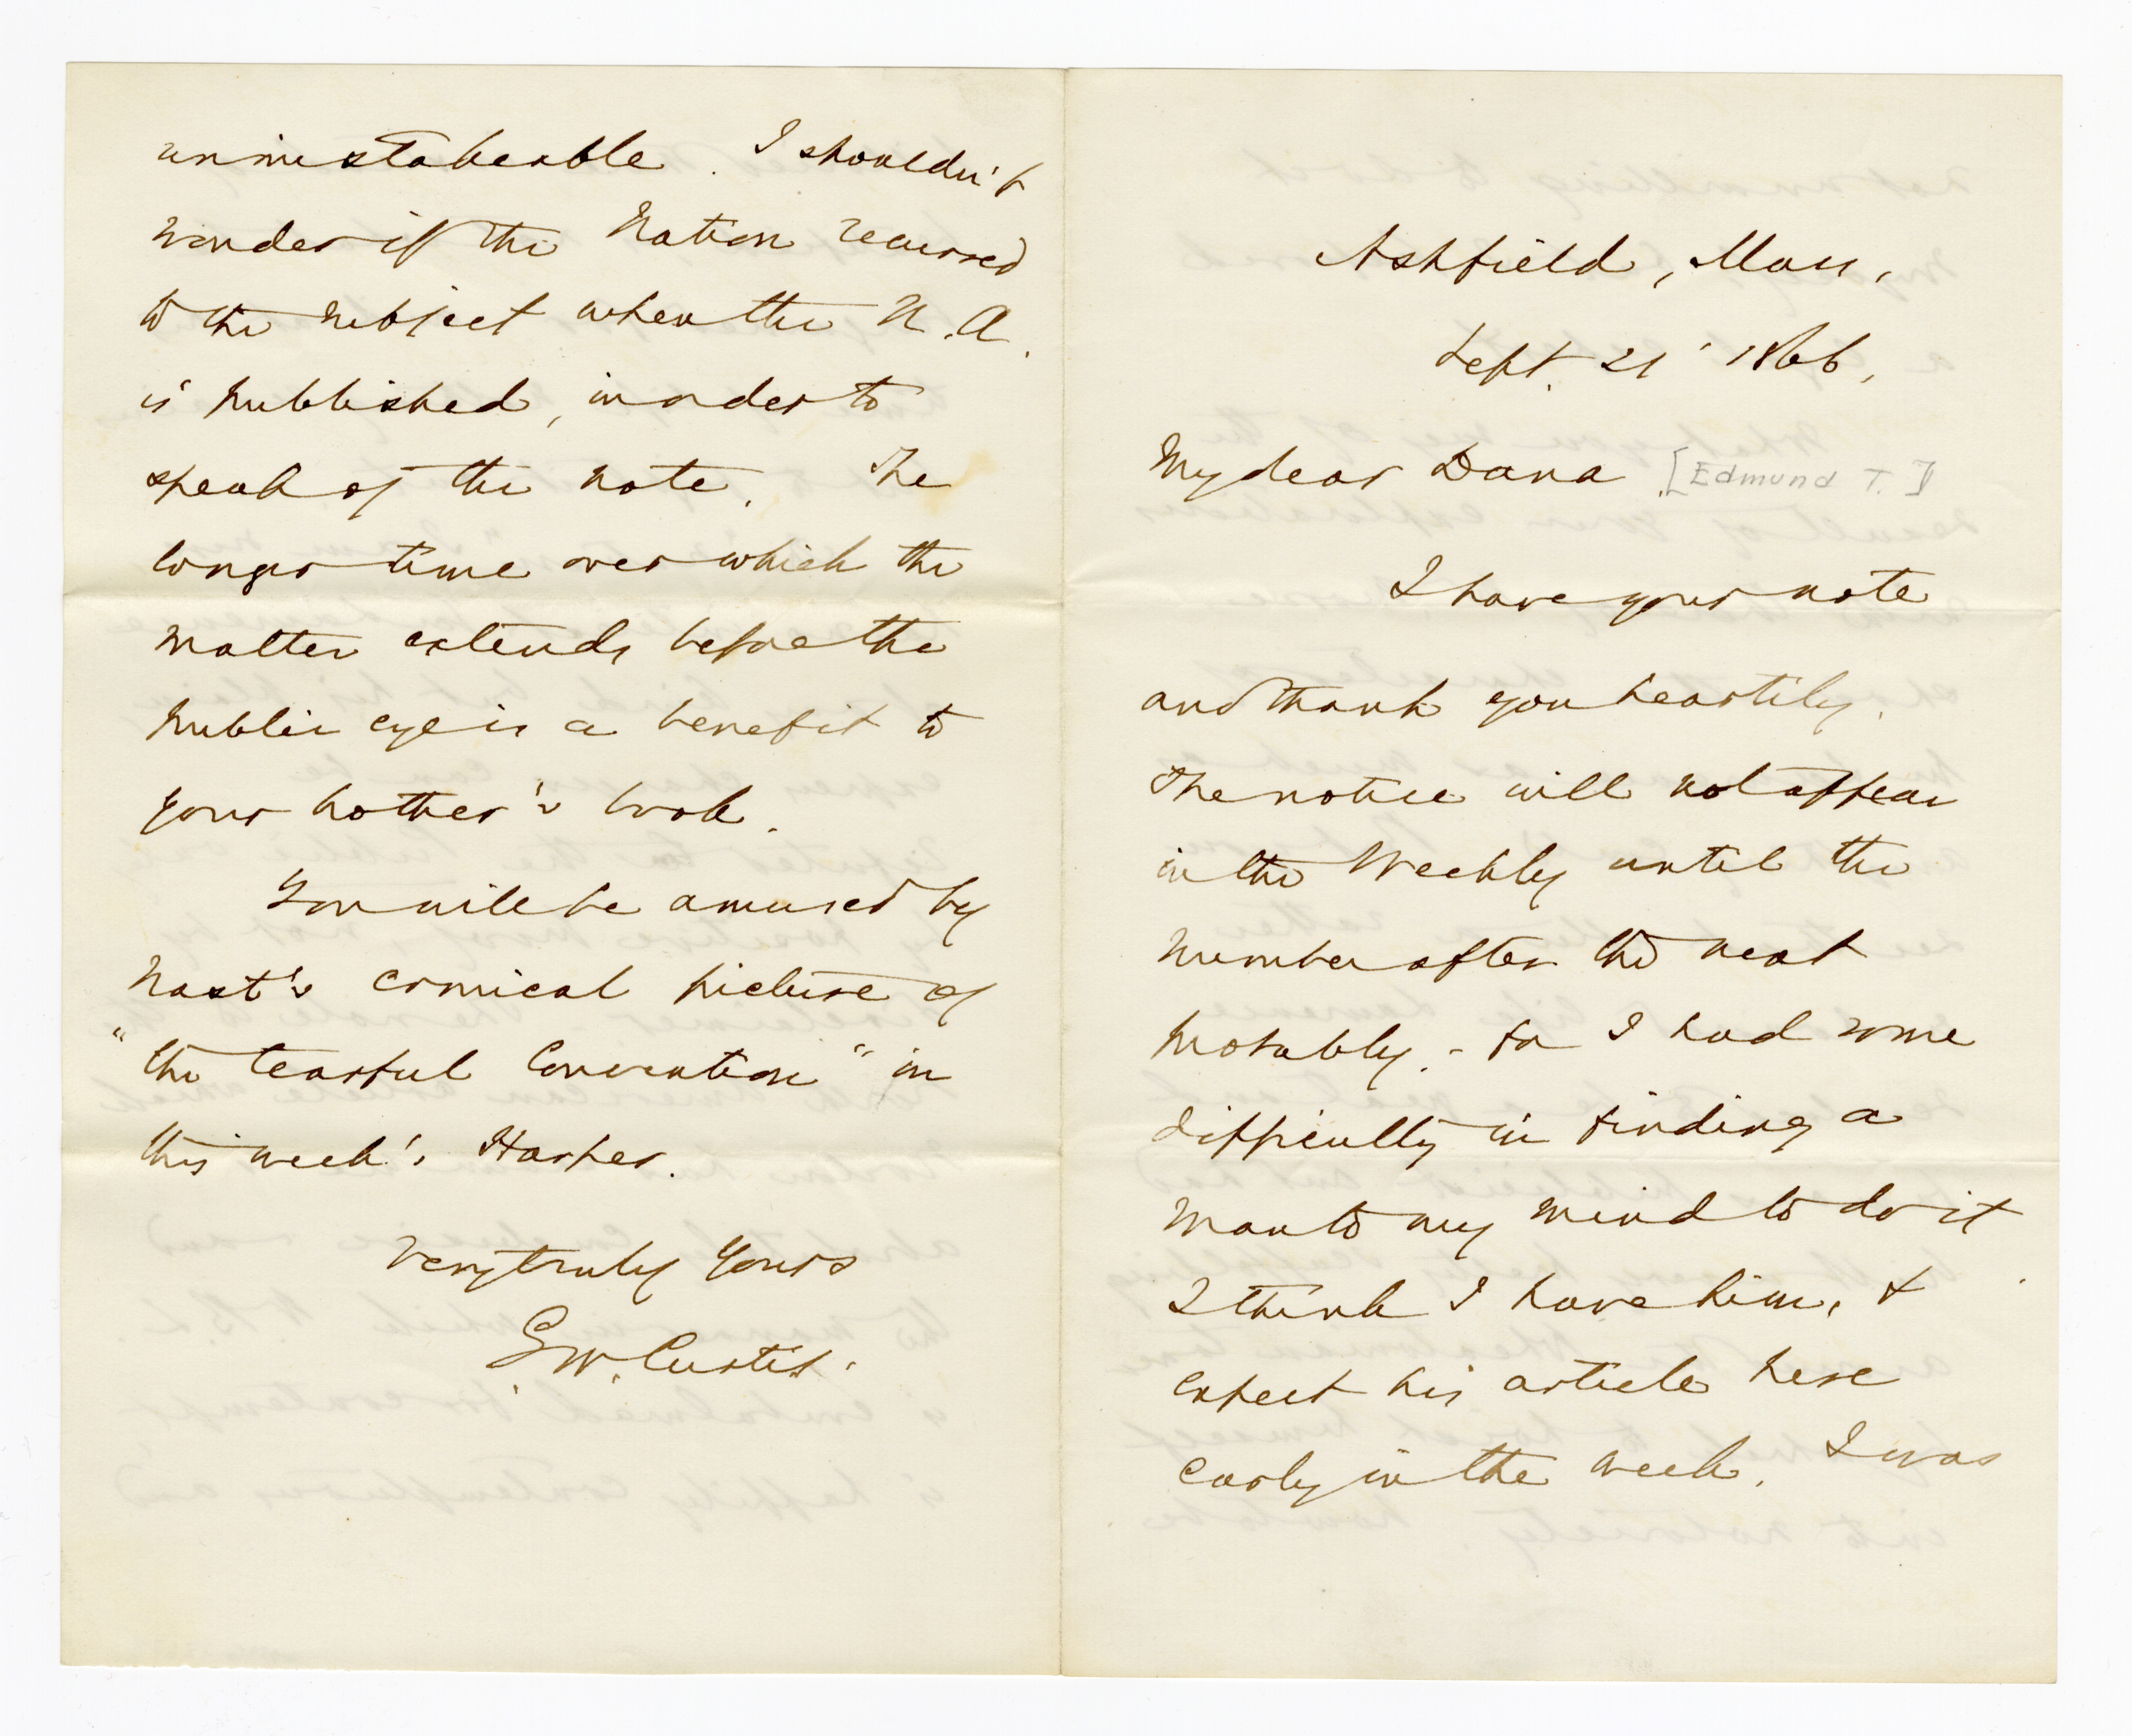 Ashfield, Mass,
Sept. 21' 1866,
My dear Dana [Edmund T.]
I have your note
and thank you heartily.
The notice will not appear
in the Weekly until the
number after the next
probably. - for I had some
difficulty in finding a
man to my mind to do it
I think I have him, &
expect his article here
early in the week. I was
unmistakeable. I shouldn't
wonder if the Nation recurred
to the subject when the N.A.
is published, in order to
speak of the note. The
longer time over which the
matter extends before the
public eye is a benefit to
your brother's book.
You will be amused by
Nast's comical picture of
"the tearful Convention" in
this week's Harper.
Very truly Yours
G.W. Curtis.